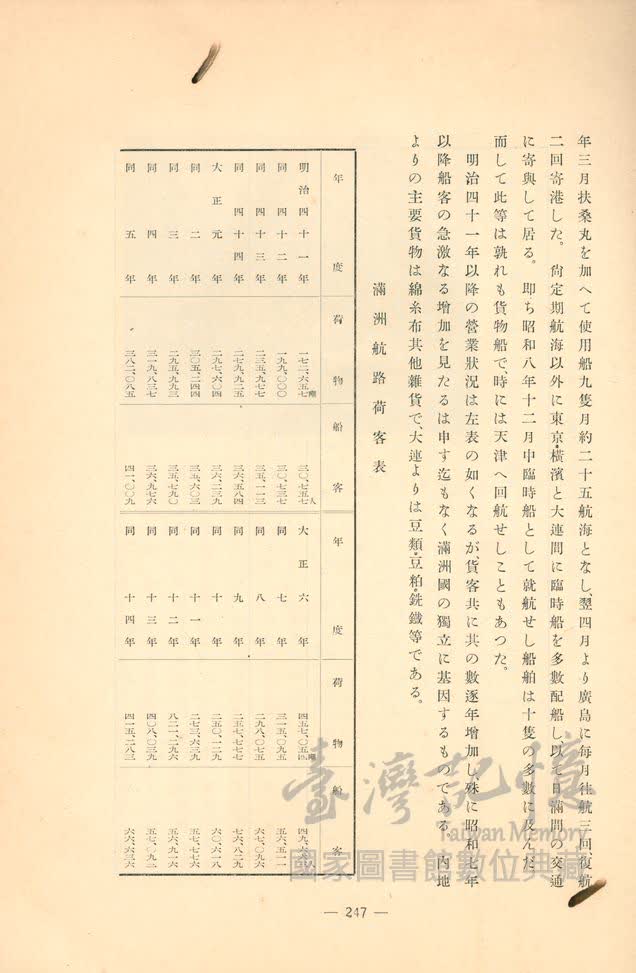 年三月扶桑丸を加へて使用船九隻月約二十五航海となし、翌四月より廣島に毎月往航三回復航
二回寄港した。尙定期航海以外に東京・橫濱と大連間に臨時船を多數配船し以て日滿間の交通
に寄與して居る。卽ち昭和八年十二月中臨時船として就航せし船舶は十隻の多數に及んだ
而して此等は孰れも貨物船で、時には天津へ回航せしこともあつた。
明治四十一年以降の營業狀況は左表の如くなるが、貨客共に其の數逐年增加し、殊に昭和七年
以降船客の急激なる增加を見たるは申す迄もなく滿洲國の獨立に基因するものである 內地
よりの主要貨物は綿糸布其他雜貨で、大連よりは豆類・豆粕・銑鐵等である。
滿洲航路荷客表
年度 荷物 船客 年度 荷物 船客
明治四十一年 一七二、六五七噸 三〇、七五七人 大正六年
同四十二年 一九九、〇〇〇 三〇、七三七 同七年 三一五、〇九五 五六、五一一
同四十三年 二三五、九七七 三五、一一三 同八年 二九八、〇七五 六七、〇九六
同四十四年 二七九、九二五 三六、五八四 同九年 二五七、七七七 七六、八二九
大正元年 二九七、六〇四 三六、二三九 同十年 二五〇、一二九 六〇、六一八
同二年 三〇五、二四四 三五、六〇三 同十一年 二七三、六三九 五七、七七六
同三年 二九五、九九三 三五、七九〇 同十二年 八二一、二九六 五六、九一六
同四年 三一九、八三七 三六、九七六 同十三年 四〇八、〇三九 五七、〇九二
同五年 三八二、〇八五 四一、〇〇九 同十四年 四一五、二八三 六六、六三六
— 247 —
臺灣記憶
Taiwan Memory
國家圖書館數位典藏